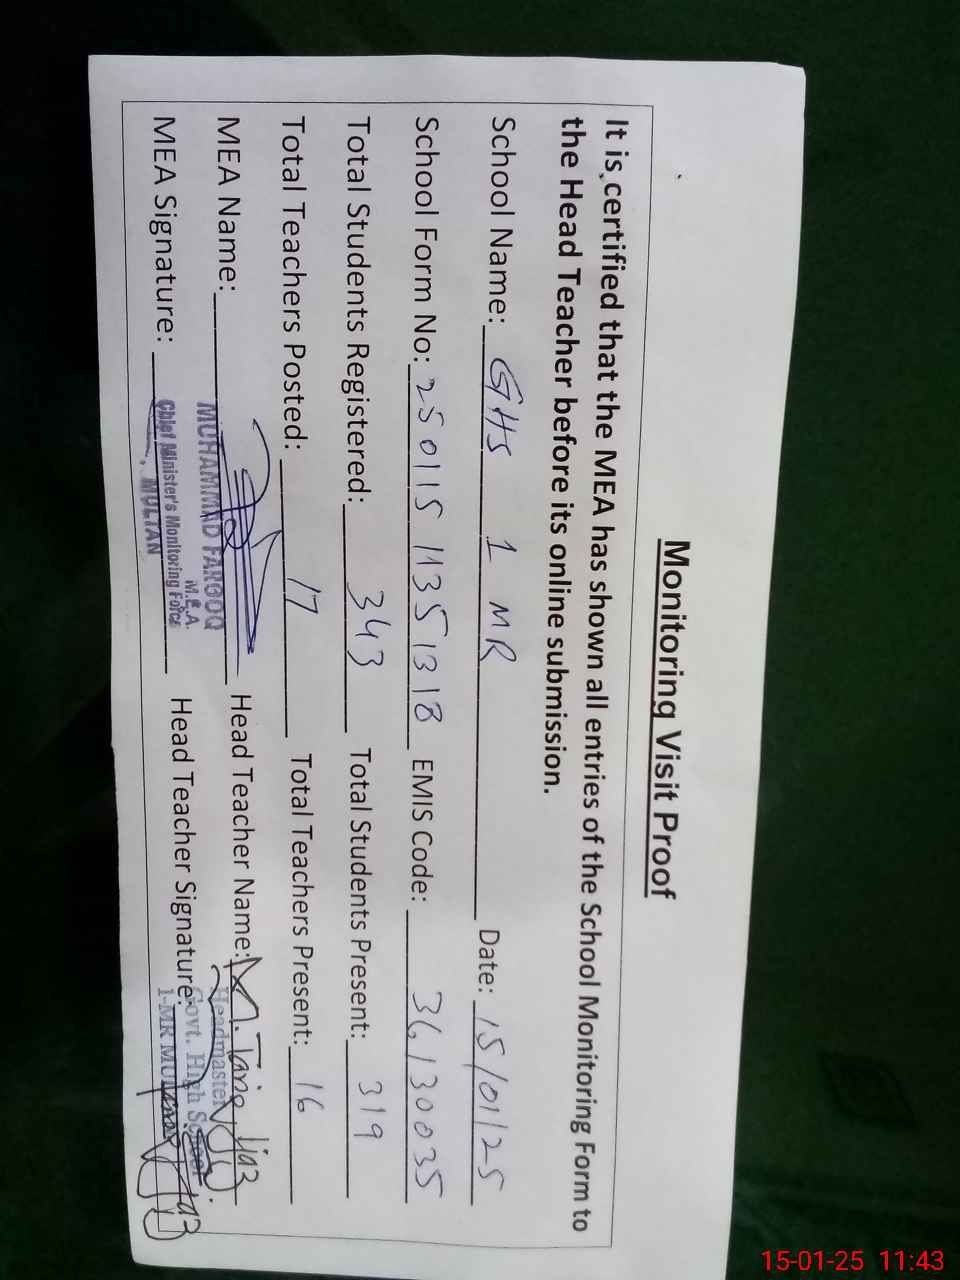 Monitoring Visit Proof
It is certified that the MEA has shown all entries of the School Monitoring Form to
the Head Teacher before its online submission.
School Name: GHS 1 MR Date: 15/01/25
School Form No: 250115 11351318 EMIS Code: 36130035
Total Students Registered: 343 Total Students Present: 319
Total Teachers Posted: 17 Total Teachers Present: 16
MEA Name: Head Teacher Name: M. Tariq Ijaz
MUHAMMAD FAROOQ
M.E.A.
Chief Minister's Monitoring Force
MULTAN
Headmaster
Govt. High School
1-MR
MEA Signature: Head Teacher Signature:
15-01-25 11:43